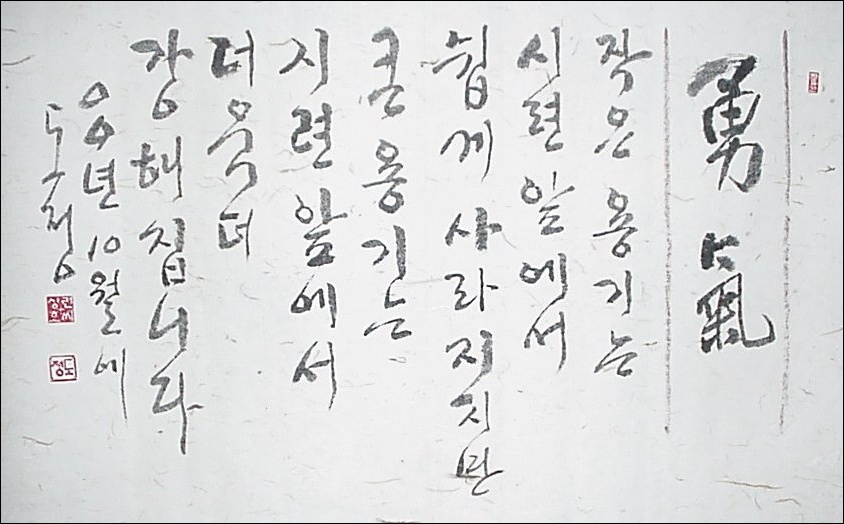 勇氣
작은 용기는
시련 앞에서
쉽게 사라지지만
큰 용기는
지련 앞에서
더욱 더
강해집니다
00년 10월에
도정
도정